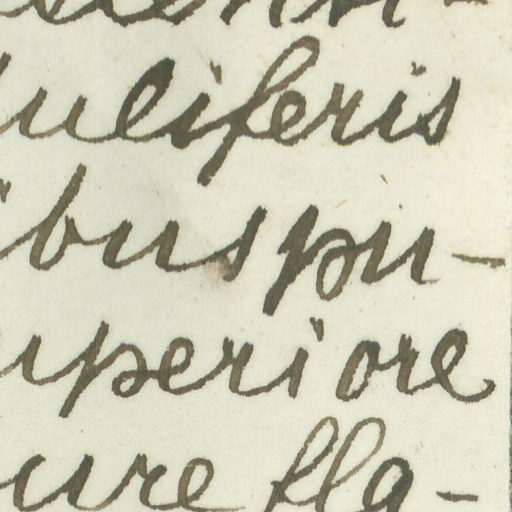 uliferis
ibus pu-
uperiore
ure fla-